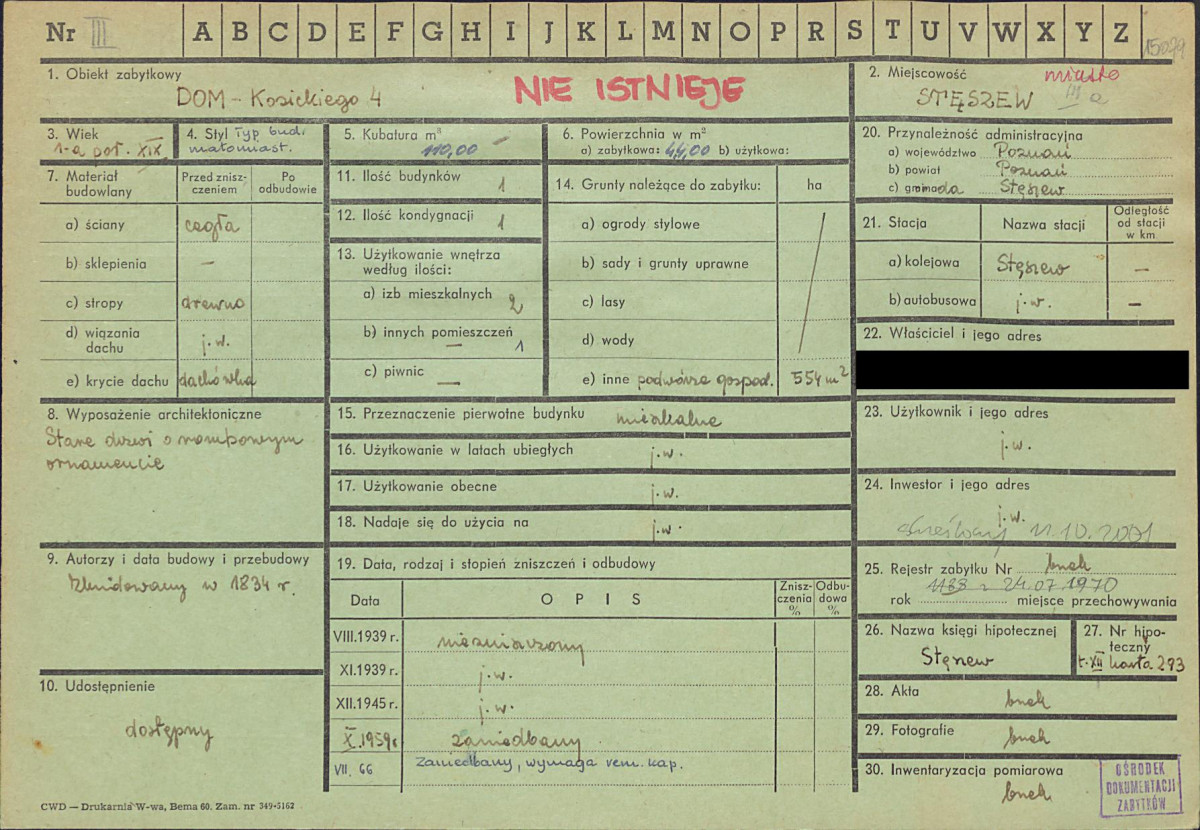 Nr III
A B C D E F G H I J K L M N O P R S T U V W X Y Z
15079
1. Obiekt zabytkowy
DOM - Kosickiego 4
NIE ISTNIEJE
2. Miejscowość
miasto
STĘSZEW
III a
3. Wiek
1-a poł. XIX
4. Styl Typ bud.
małomiast.
5. Kubatura m³
110,00
6. Powierzchnia w m²
a) zabytkowa: 44,00 b) użytkowa:
7. Materiał budowlany
Przed zniszczeniem
Po odbudowie
a) ściany cegła
b) sklepienia —
c) stropy drewno
d) wiązania dachu j.w.
e) krycie dachu dachówka
8. Wyposażenie architektoniczne
Stare drzwi o rombowym
ornamencie
9. Autorzy i data budowy i przebudowy
Zbudowany w 1834 r.
10. Udostępnienie
dostępny
11. Ilość budynków 1
12. Ilość kondygnacji 1
13. Użytkowanie wnętrza
według ilości:
a) izb mieszkalnych 2
b) innych pomieszczeń
— 1
c) piwnic —
14. Grunty należące do zabytku: ha
a) ogrody stylowe
b) sady i grunty uprawne
c) lasy
d) wody
e) inne podwórze gospod. 554 m²
15. Przeznaczenie pierwotne budynku mieszkalne
16. Użytkowanie w latach ubiegłych j.w.
17. Użytkowanie obecne j.w.
18. Nadaje się do użycia na j.w.
19. Data, rodzaj i stopień zniszczeń i odbudowy
Data
O P I S
Zniszczenia %
Odbudowa %
VIII.1939 r. niezniszczony
XI.1939 r. j.w.
XII.1945 r. j.w.
X.1959 r. zaniedbany
VII. 66 Zaniedbany, wymaga rem. kap.
20. Przynależność administracyjna
a) województwo Poznań
b) powiat Poznań
c) gromada Stęszew
21. Stacja
Nazwa stacji
Odległość od stacji w km
a) kolejowa Stęszew —
b) autobusowa j.w. —
22. Właściciel i jego adres
23. Użytkownik i jego adres
j.w.
24. Inwestor i jego adres
j.w.
skreślony 11.10.2001
25. Rejestr zabytku Nr brak
1188 z 24.07.1970
rok miejsce przechowywania
26. Nazwa księgi hipotecznej
Stęszew
27. Nr hipoteczny
t. XII karta 293
28. Akta
brak
29. Fotografie
brak
30. Inwentaryzacja pomiarowa
brak
OŚRODEK
DOKUMENTACJI
ZABYTKÓW
CWD — Drukarnia W-wa, Bema 60. Zam. nr 349-5162